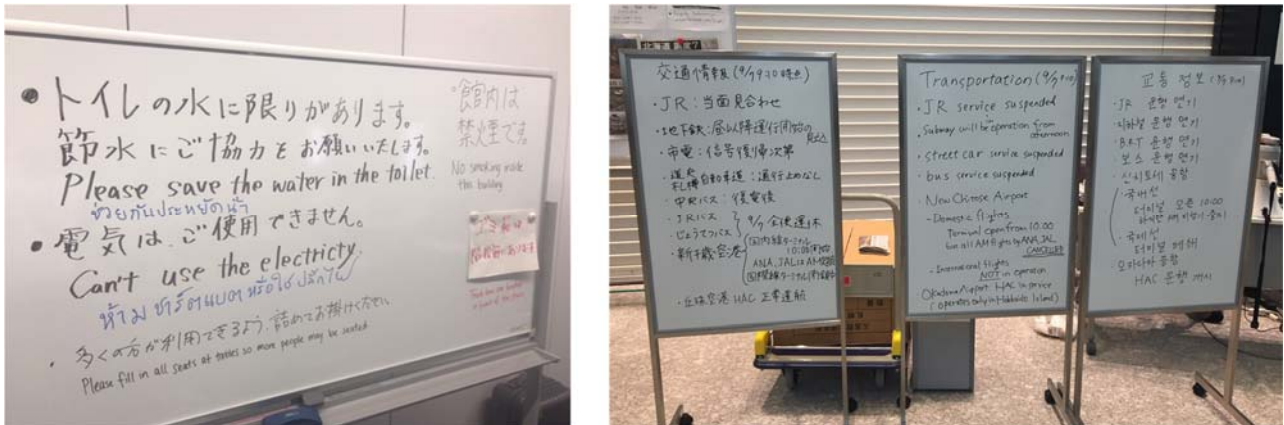 • トイレの水に限りがあります。
節水にご協力をお願いいたします。
Please save the water in the toilet.
ช่วยกันประหยัดน้ำ
• 電気は、ご使用できません。
Can't use the electricty
ห้าม ชาร์ตแบต หรือใช้ ปลั๊กไฟ
・多くの方が利用できるよう、詰めてお掛けください。
Please fill in all seats at tables so more people may be seated.
館内は
禁煙です。
No smoking inside
this building
交通情報 (9/7 9:10 時点)
・JR:当面見合わせ
・地下鉄:昼以降運行開始の
見込
・市電:信号復帰次第
・道央
札樽 自動車道:通行止めなし
・中央バス:復電後
・JRバス
・じょうてつバス
9/7 全便運休
・新千歳空港
国内線ターミナル
10:00開始
ANA、JALは
国際線ターミナル
・丘珠空港 HAC 正常運航
Transportation (9/7 9:10)
・JR service suspended
・Subway will be operation from
afternoon
・street car service suspended
・bus service suspended
・New Chitose Airport
- Domestic flights
Terminal open from 10:00
but all AM flights by ANA, JAL
CANCELLED
- International flights
NOT in operation
・Okadama Airport HAC in service
(operates only in Hokkaido Island)
교통 정보
・JR 운행 연기
・지하철 운행 연기
・BRT 운행 연기
・버스 운행 연기
・신치토세 공항
국내선
터미널 오픈 10:00
국제선
터미널 폐쇄
・오카다마 공항
HAC 운행 개시